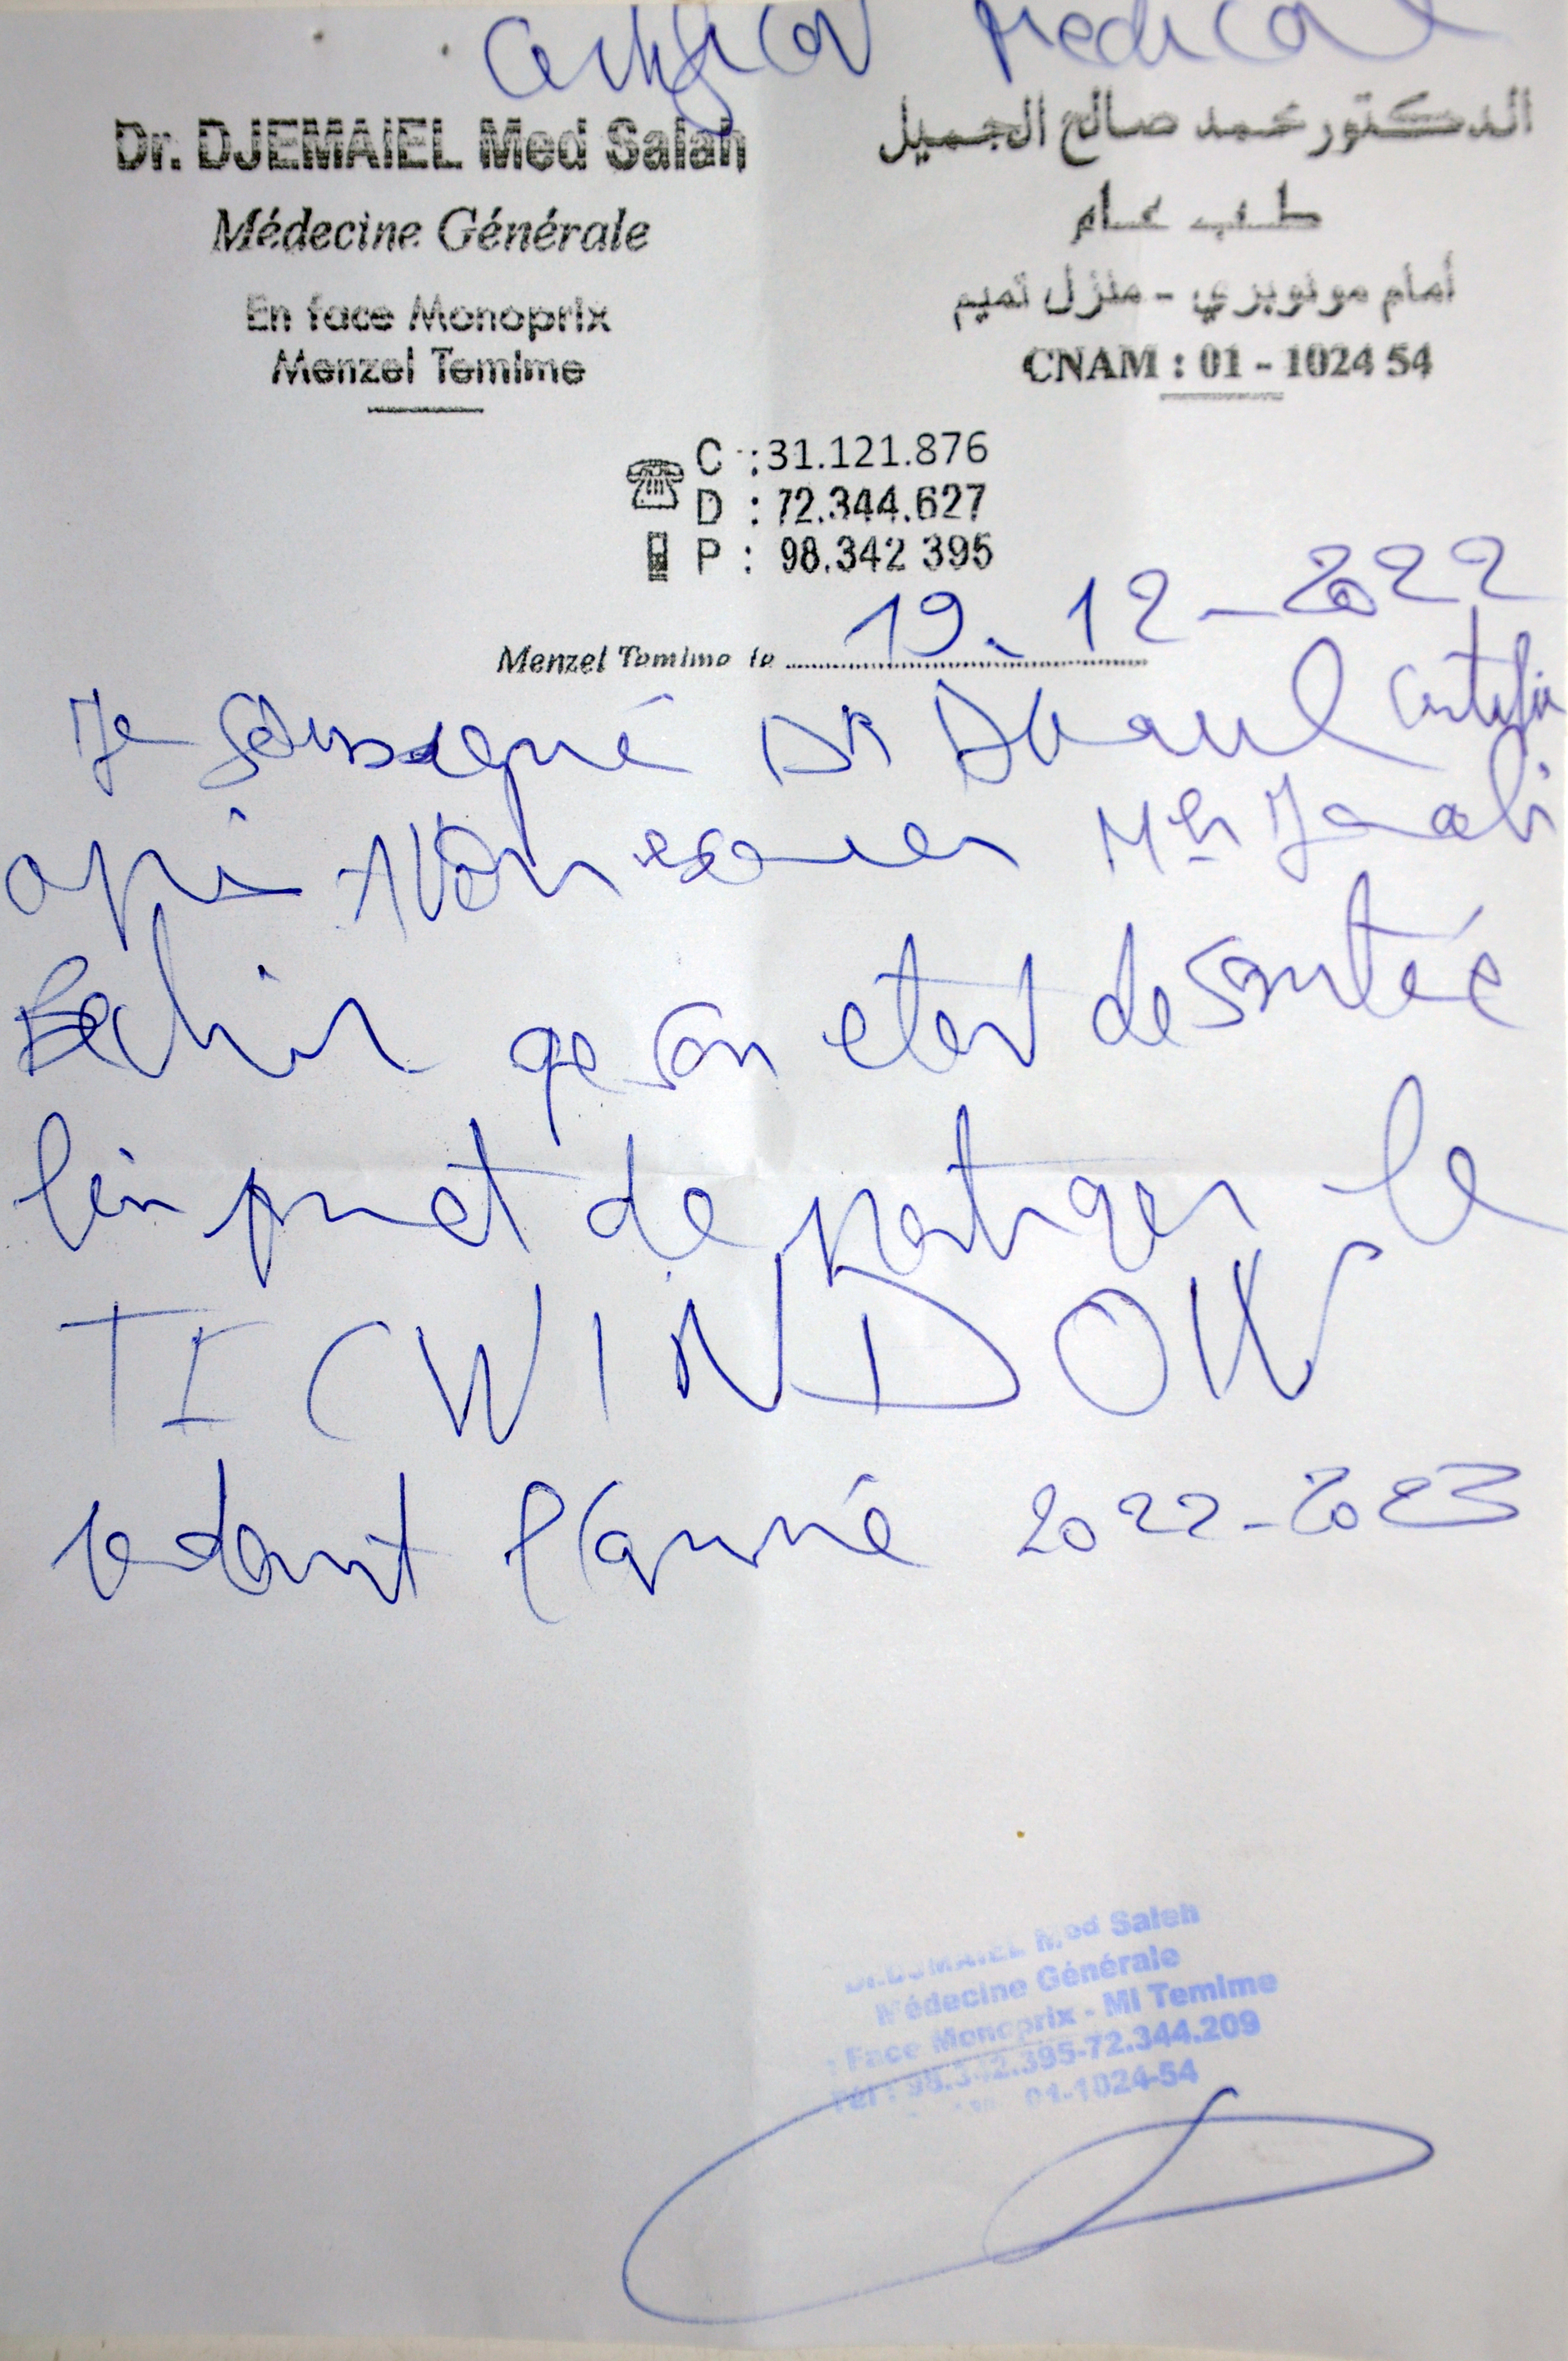 Certificat Medical
Dr. DJEMAIEL Med Salah
Médecine Générale
En face Monoprix
Menzel Temime
الدكتور محمد صالح الجميل
طب عام
أمام مونوبري - منزل تميم
CNAM : 01 - 1024 54
C : 31.121.876
D : 72.344.627
P : 98.342 395
Menzel Temime le 19. 12 - 2022
Je soussigné Dr certifie
après Avoir examiner Mr
Bechir que son etat de santée
de le
TICWINDOW
l'année 2022-2023
Med Saleh
Médecine Générale
: Face Monoprix - Ml Temime
Tél : 98.342.395-72.344.209
01-1024-54